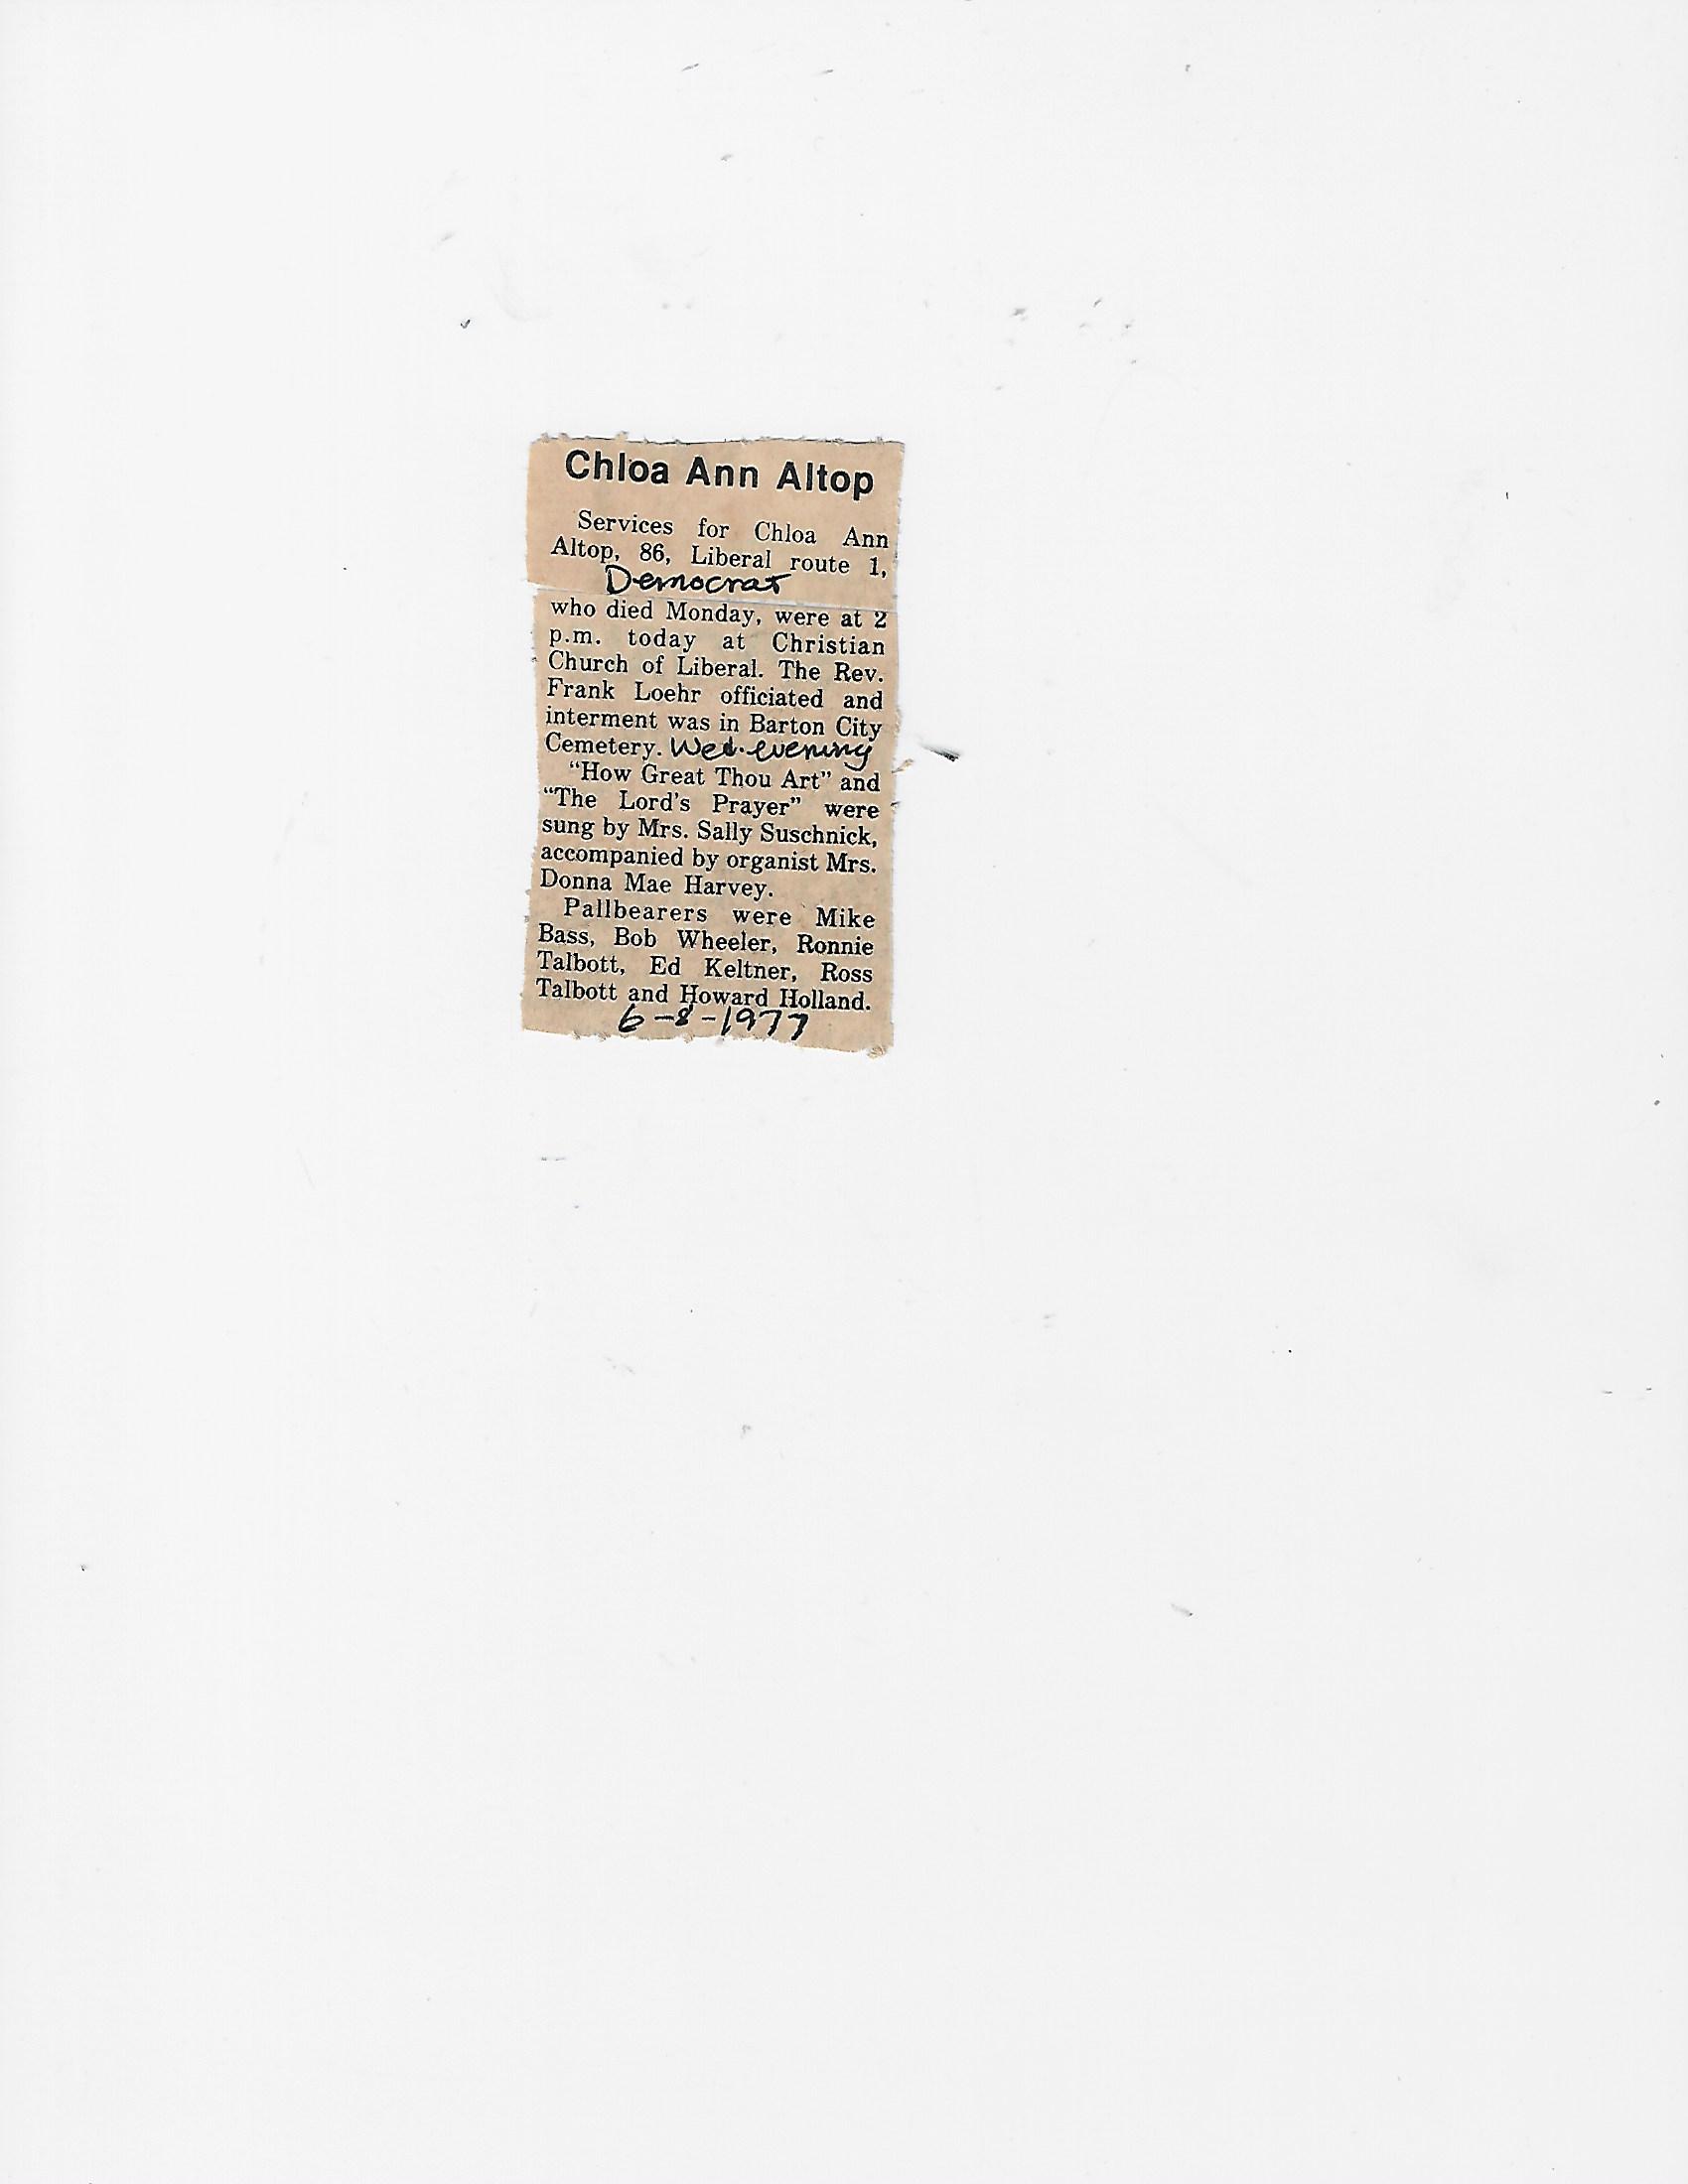 Chloa Ann Altop
Services for Chloa Ann
Altop, 86, Liberal route 1,
Democrat
who died Monday, were at 2
p.m. today at Christian
Church of Liberal. The Rev.
Frank Loehr officiated and
interment was in Barton City
Cemetery. Wed. evening
“How Great Thou Art” and
“The Lord’s Prayer” were
sung by Mrs. Sally Suschnick,
accompanied by organist Mrs.
Donna Mae Harvey.
Pallbearers were Mike
Bass, Bob Wheeler, Ronnie
Talbott, Ed Keltner, Ross
Talbott and Howard Holland.
6-8-1977